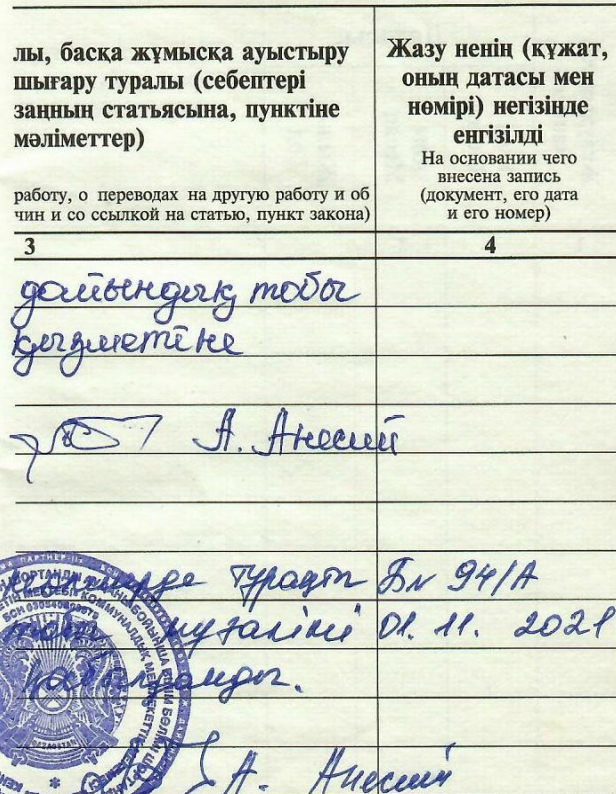 лы, басқа жұмысқа ауыстыру
шығару туралы (себептері
заңның статьясына, пунктіне
мәліметтер)
работу, о переводах на другую работу и об
чин и со ссылкой на статью, пункт закона)
Жазу ненің (құжат,
оның датасы мен
нөмірі) негізінде
енгізілді
На основании чего
внесена запись
(документ, его дата
и его номер)
3
4
дайындық тобы
қызметіне
А. Анесий
тұрақты
Бұ 94/А
мұғалімі
01. 11. 2021
қабылданды.
А. Анесий